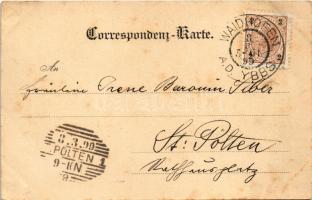 Correspondenz-Karte.
WAIDHOFEN
A.D. YBBS
An
Fräulein Irene Baronin Fiber
St: Pölten
Rathhausplatz
8.3.99
PÖLTEN 1
9-11N